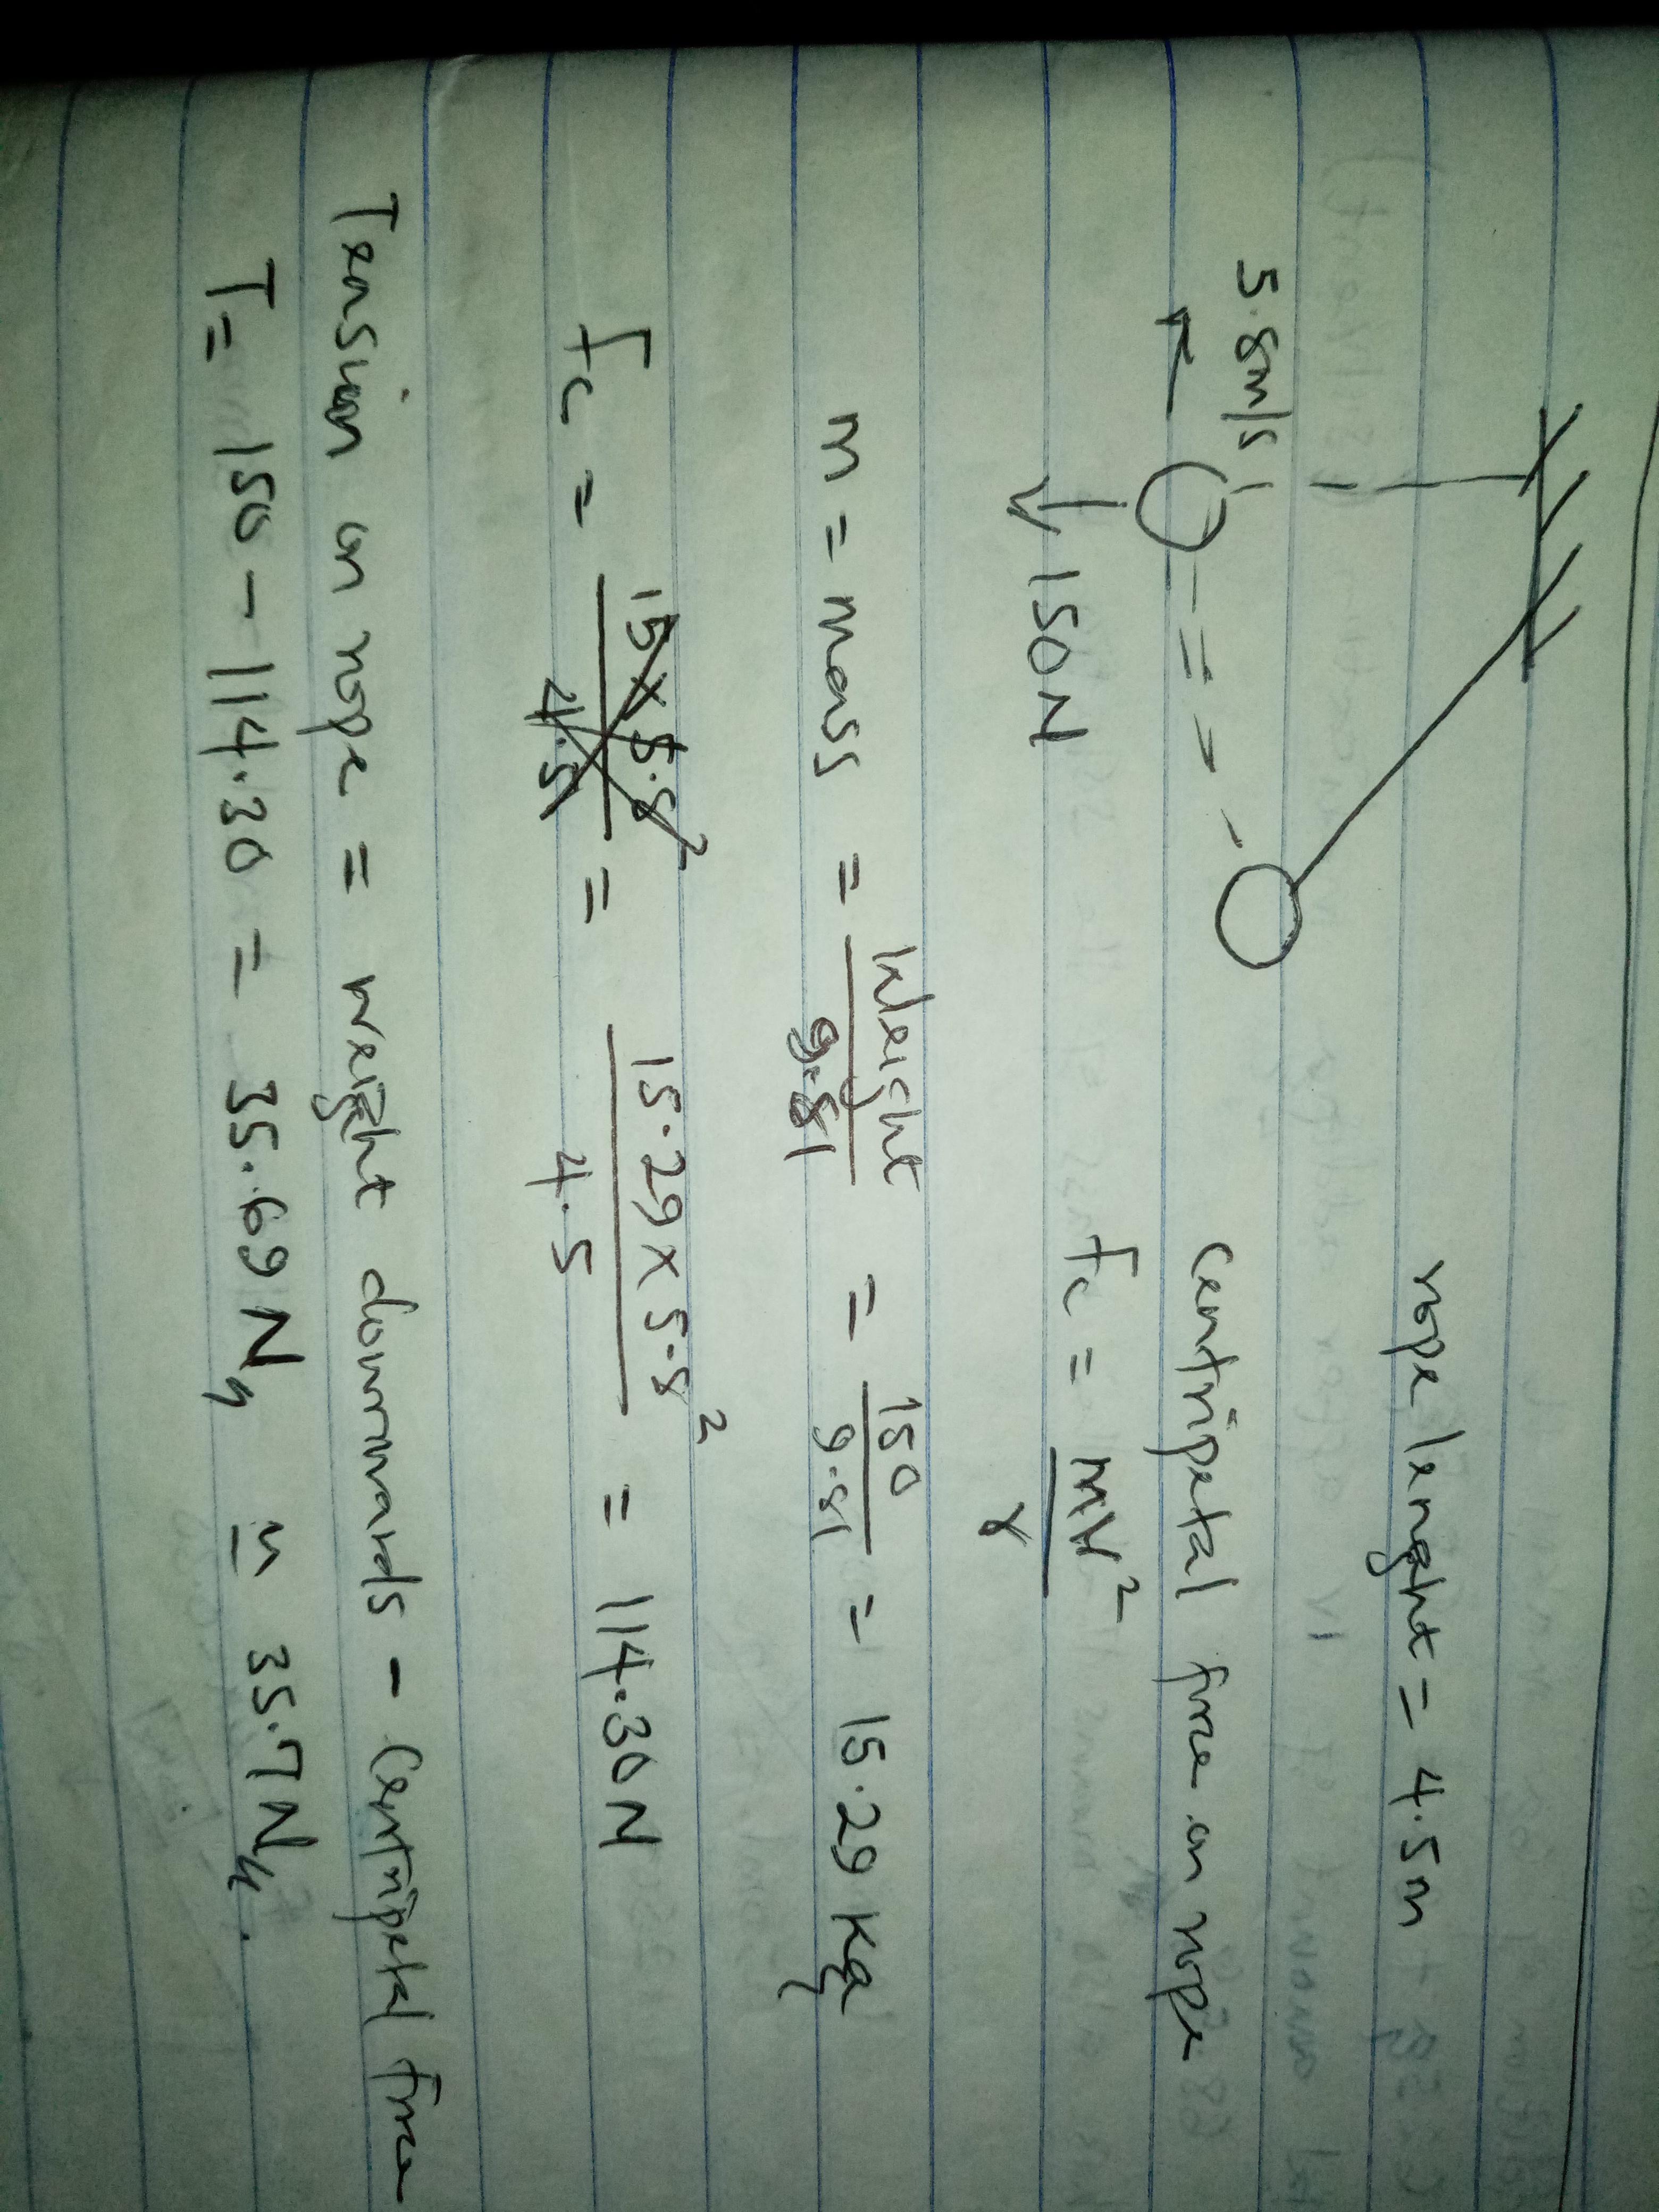 rope lenght = 4.5m
5.8m/s
150N
centripetal force on rope
Fc = mv²/r
m = mass = Weight/9.81 = 150/9.81 = 15.29 Kg
Fc = 15 x 5.8²/4.5 = 15.29 x 5.8²/4.5 = 114.30N
Tension on rope = weight downwards - Centripetal force
T = 150 - 114.30 = 35.69N ≃ 35.7N